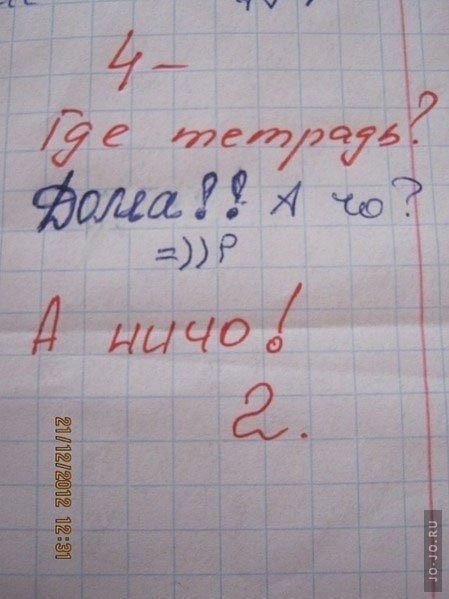 4-
Где тетрадь?
Дома!! А чо?
=))P
А ничо!
2.
21/12/2012 12:31
JO-JO.RU